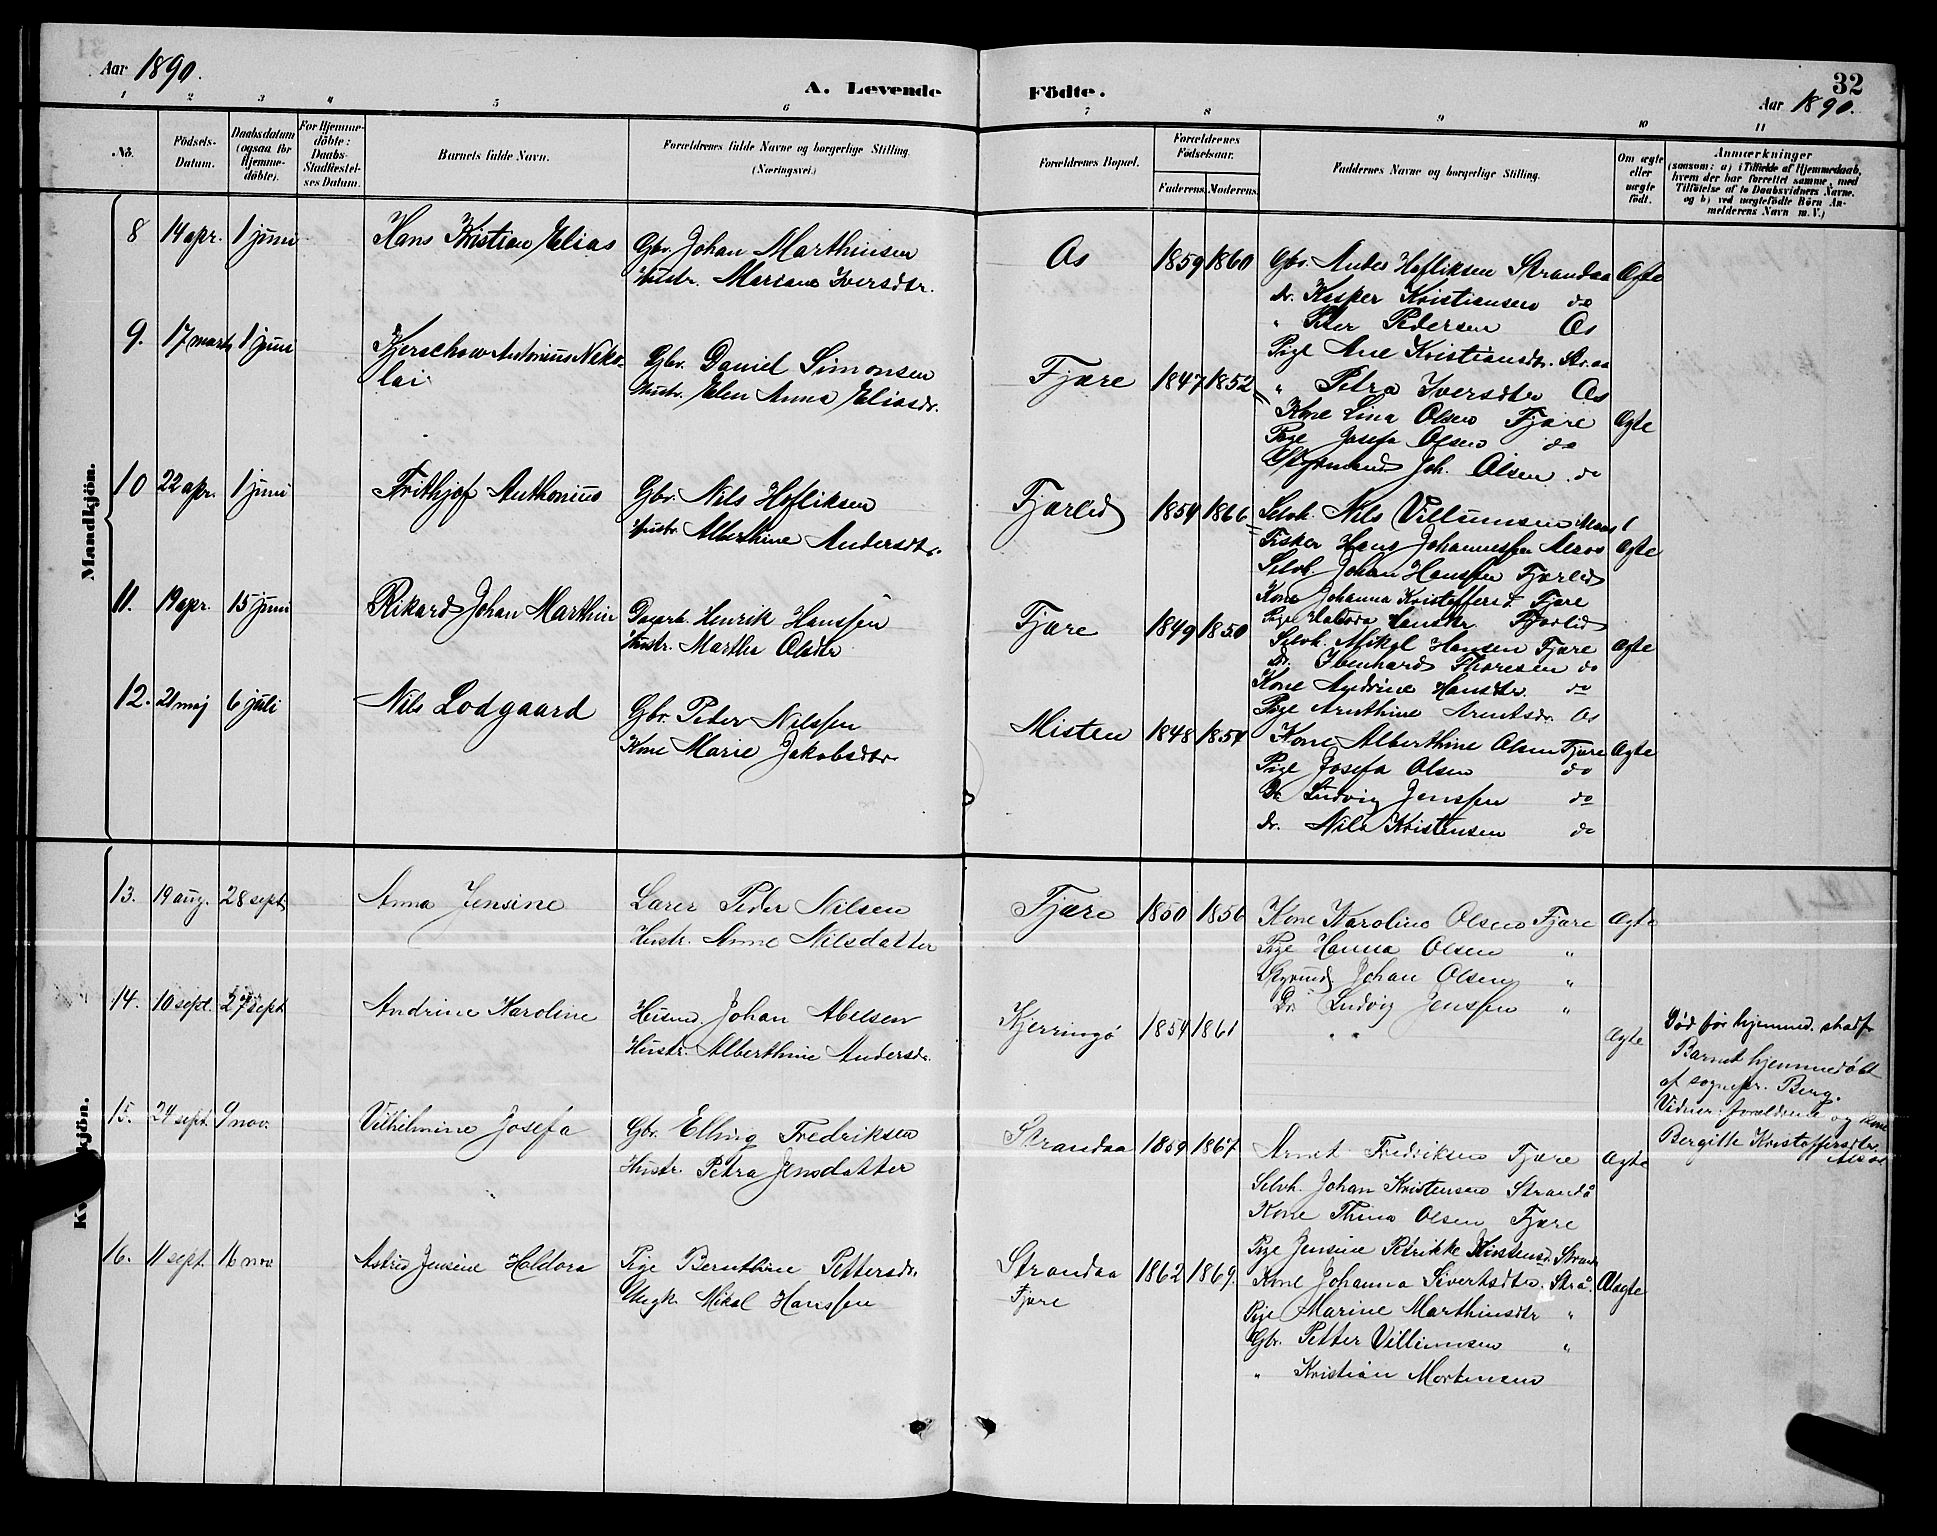 Aar 1890.
A. Levende
Födte.
32
Aar 1890.
1 2 3 4 5 6 7 8 9 10 11
No.
Födsels-
Datum.
Daabsdatum
(ogsaa for
Hjemme-
döbte).
For Hjemme-
döbte:
Daabs-
Stadfæstel-
ses Datum.
Barnets fulde Navn.
Forældrenes fulde Navne og borgerlige Stilling
(Næringsvei.)
Forældrenes Bopæl.
Forældrenes
Födselsaar.
Faderens. Moderens.
Faddernes Navne og borgerlige Stilling.
Om ægte
eller
uægte
födt.
Anmærkninger
(saasom: a) i Tilfælde af Hjemmedaab,
hvem der har forrettet samme, med
Tilföielse af to Daabsvidners Navne.
og b) ved uægtefödte Börn An-
melderens Navn m. V.)
Mandkjön.
8 14 apr. 1 juni Hans Kristian Elias
Gbr. Johan Marthinsen
Hustr. Mariane Iversdtr.
Os 1859 1860
Gbr. Anders Hofliksen Strandaa Ægte
do. Kasper Kristiansen do
" Peter Pedersen Os
Pige Ane Kristiansdtr. Str.aa
" Petra Iversdtr Os
9. 17 marts 1 juni Kjerschow Antonius Niko-
lai
Gbr. Daniel Simonsen
Hustr. Elen Anna Eliasdr.
Fjære 1847 1852
Kone Lina Olsen Fjære Ægte
Pige Josefa Olsen do
Styrmand Joh. Olsen do
10 22 apr. 1 juni Frithjof Anthonius
Gbr. Nils Hofliksen
Hustr Alberthine Andersdtr.
Fjærlid 1854 1866
Selvh. Nils Villumsen
Fisker Hans Johannessen Alsos Ægte
Selvh. Johan Hanssen Fjærlid
Kone Johanna Kristoffersd. Fjære
Pige Haldora Hansdtr Fjærlid
11. 19 apr. 15 juni Rikard Johan Marthin
Dagarb. Henrik Hanssen
Hustr. Martha Olsdtr
Fjære 1849 1850
Selvh. Mikal Hansen Fjære Ægte
Do. Ibenhard Thoresen do
Kone Andrine Hansdtr. do
Pige Arnthine Arntsdr. Os
12. 21 maj 6 juli Nils Lodgaard
Gbr. Peder Nilssen
Kone Marie Jakobsdtr
Misten 1848 1854
Kone Alberthine Olsen Fjære Ægte
Pige Josefa Olsen do
Do Ludvig Jenssen do
do. Nils Kristensen do
Kvindkjön.
13. 19 aug. 28 sept Anna Jensine
Lærer Peder Nilsen
Hustr. Anne Nilsdatter
Fjære 1850 1856
Kone Karoline Olsen Fjære Ægte
Pige Hanna Olsen "
Styrmd Johan Olsen "
Do Ludvig Jenssen "
14. 10 sept. 27 sept Andrine Karoline
Husmd. Johan Abelsen
Hustr. Alberthine Andersdr.
Kjerringö 1854 1861
" "
Ægte
Död för hjemmed. stadf.
Barnet hjemmedöbt
af sognepr. Berg.
Vidner: forældrene og kone
Bergitte Kristoffersdtr
Alsos
15. 24 sept. 9 nov. Vilhelmine Josefa
Gbr. Elling Fredriksen
Hustr. Petra Jensdatter
Strandaa 1859 1867
Arnt Fredriksen Fjære Ægte
Selvh. Johan Kristensen Strandå
Kone Thina Olsen Fjære
Pige Jensine Petrikke Kristensd. Strand
16. 11 sept. 16 nov Astrid Jensine Haldora
Pige Bernthine Pettersdr.
Ungk. Mikal Hanssen
Strandaa
Fjære
1862 1869.
Kone Johanna Sivertsdtr. Strå. Uægte
Pige Marine Marthinsdtr "
Gbr. Petter Villumsen "
" Kristian Mortensen